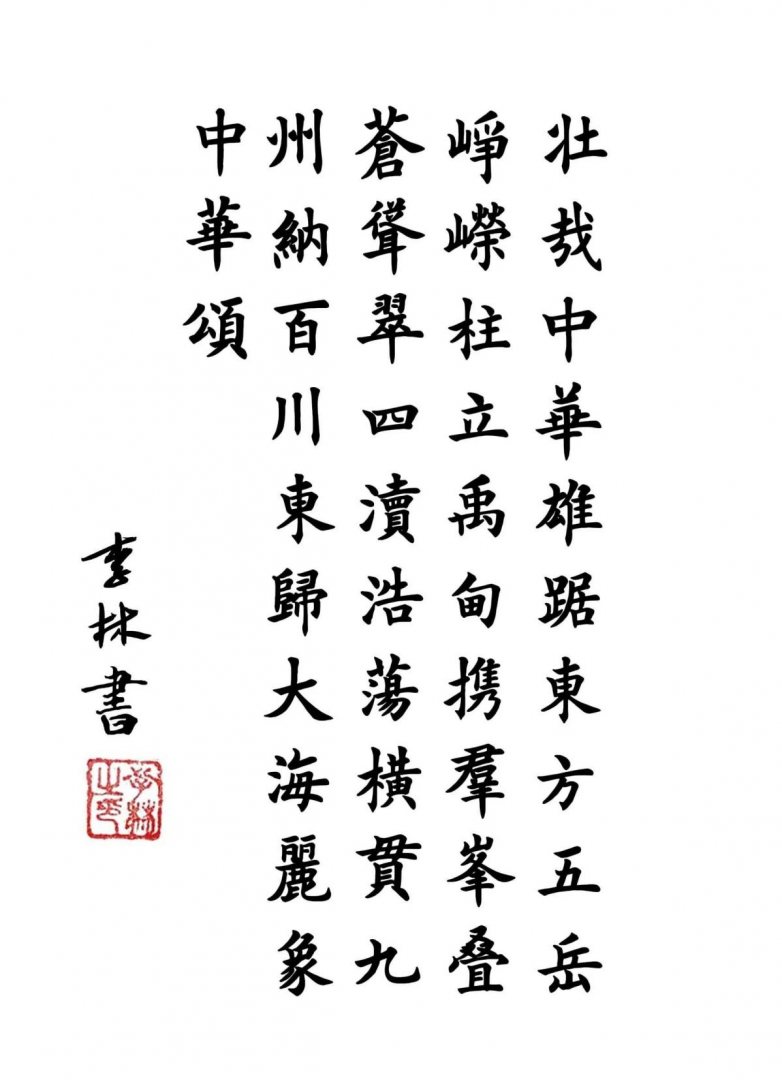 壯哉中華雄踞東方五岳
崢嶸柱立禹甸携羣峯叠
蒼聳翠四瀆浩蕩橫貫九
州納百川東歸大海麗象
中華頌
李林書
李林之印